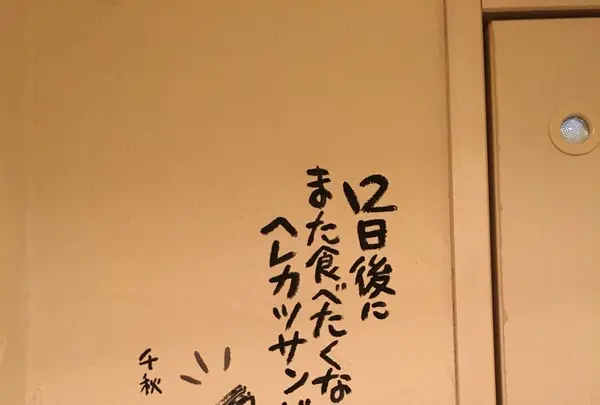 12日後に
また食べたくな
ヘレカツサン
千秋